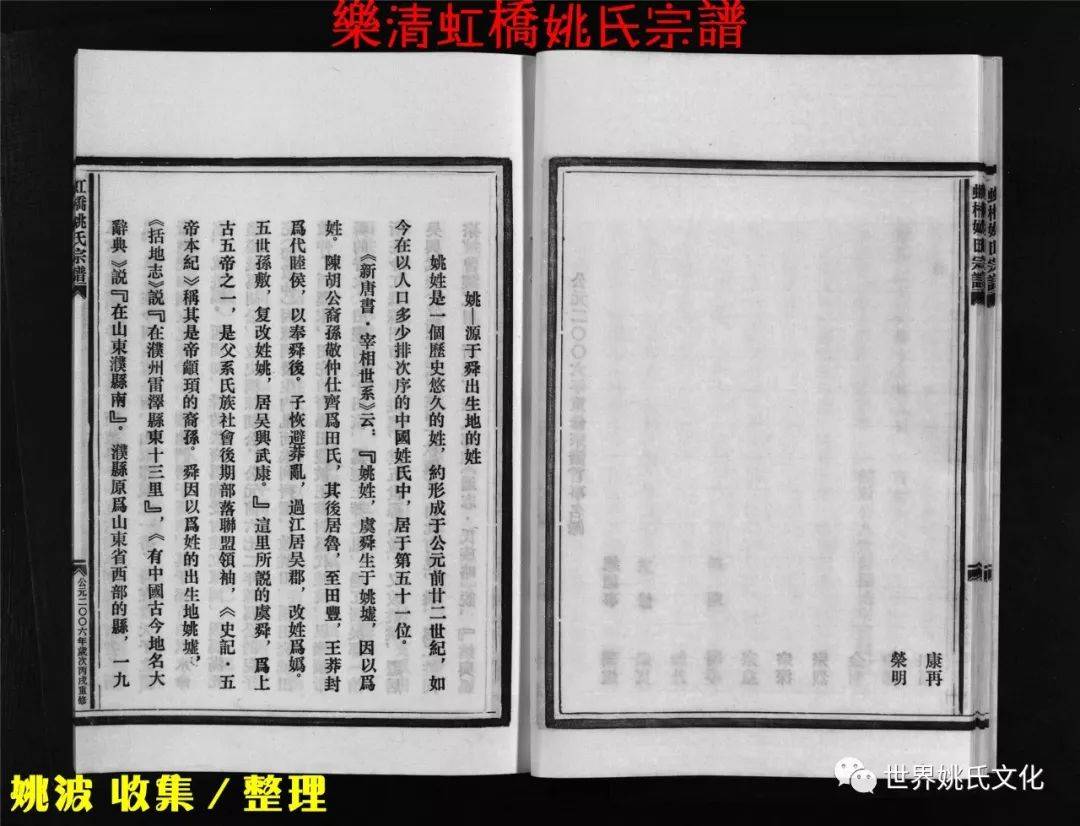 樂清虹橋姚氏宗譜
康再
榮明
姚—源于舜出生地的姓
姚姓是一個歷史悠久的姓，約形成于公元前廿二世紀，如
今在以人口多少排次序的中國姓氏中，居于第五十一位。
《新唐書·宰相世系》云：『姚姓，虞舜生于姚墟，因以爲
姓。陳胡公裔孫敬仲仕齊爲田氏，其後居魯，至田豐，王莽封
爲代睦侯，以奉舜後。子恢避莽亂，過江居吴郡，改姓爲嬀。
五世孫敷，复改姓姚，居吴興武康。』這里所説的虞舜，爲上
古五帝之一，是父系氏族社會後期部落聯盟領袖，《史記·五
帝本紀》稱其是帝顓頊的裔孫。舜因以爲姓的出生地姚墟，
《括地志》説『在濮州雷澤縣東十三里』，《有中國古今地名大
辭典》説『在山東濮縣南』。濮縣原爲山東省西部的縣，一九
虹橋姚氏宗譜
公元二〇〇六年歲次丙戌重修
姚波 收集／整理
世界姚氏文化